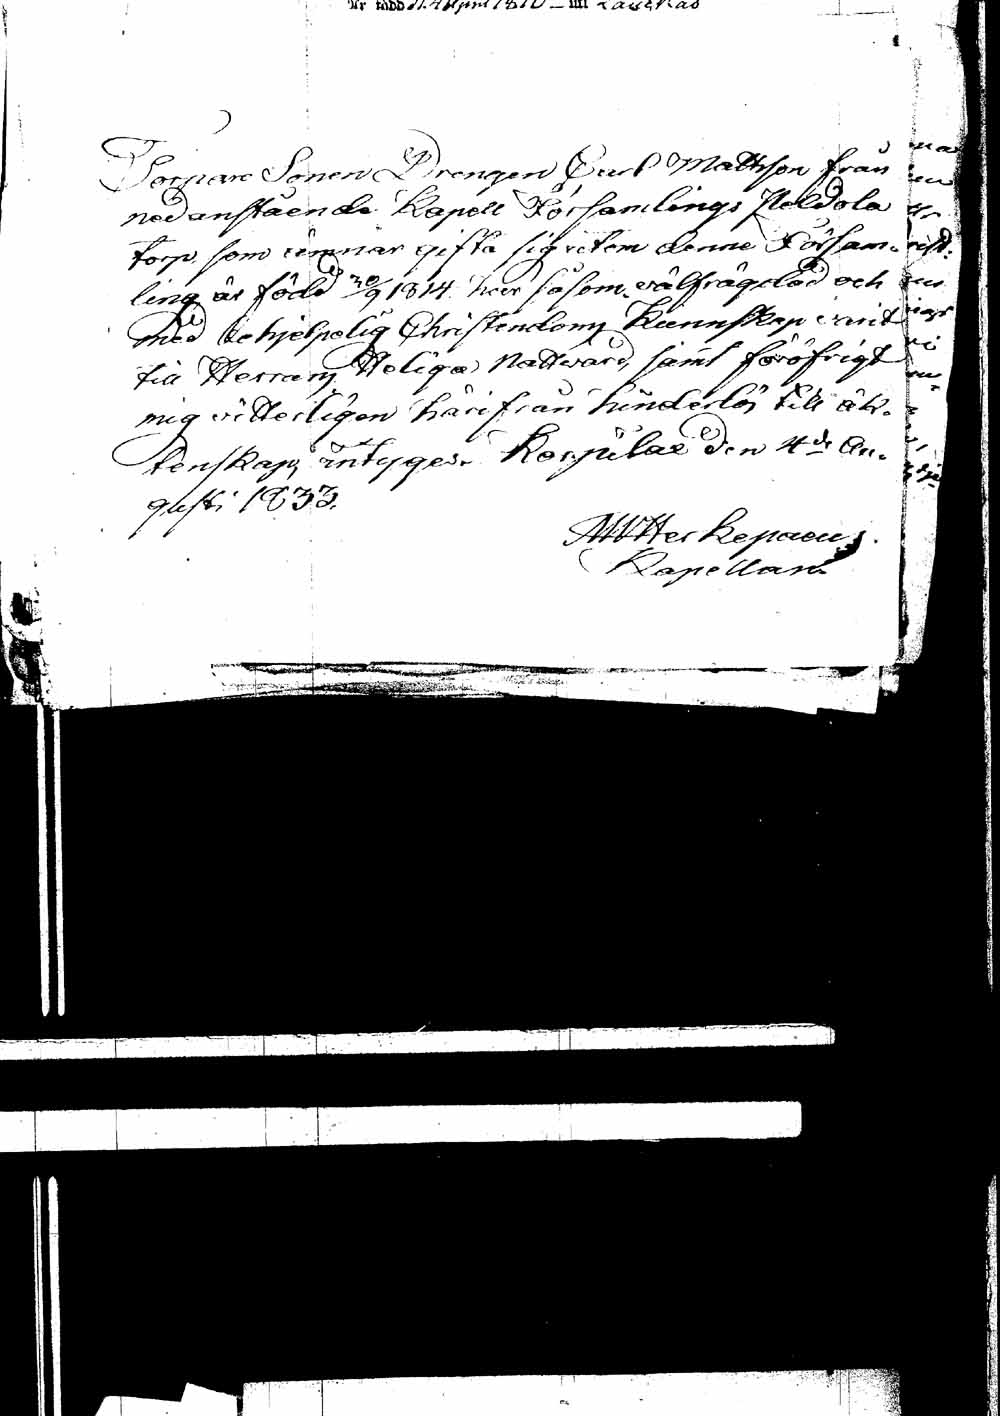 är född d. 4 April 1810 – till
Torpare Sonen Drengen Carl Mattsson från
nedanstående Kapell Församlings Heldola
torp, som ämnar gifta sig utom denne Försam-
ling är född 30/9 1814. har såsom välfrägdad och
med behjelpelig Christendoms Kunnskap varit
till Herrans Heliga Nattvard, samt föröfrigt
mig vitterligen härifrån hinderlös till äk-
tenskap, intygar. Korpilax den 4de Au-
gusti 1833.
Kapellan.